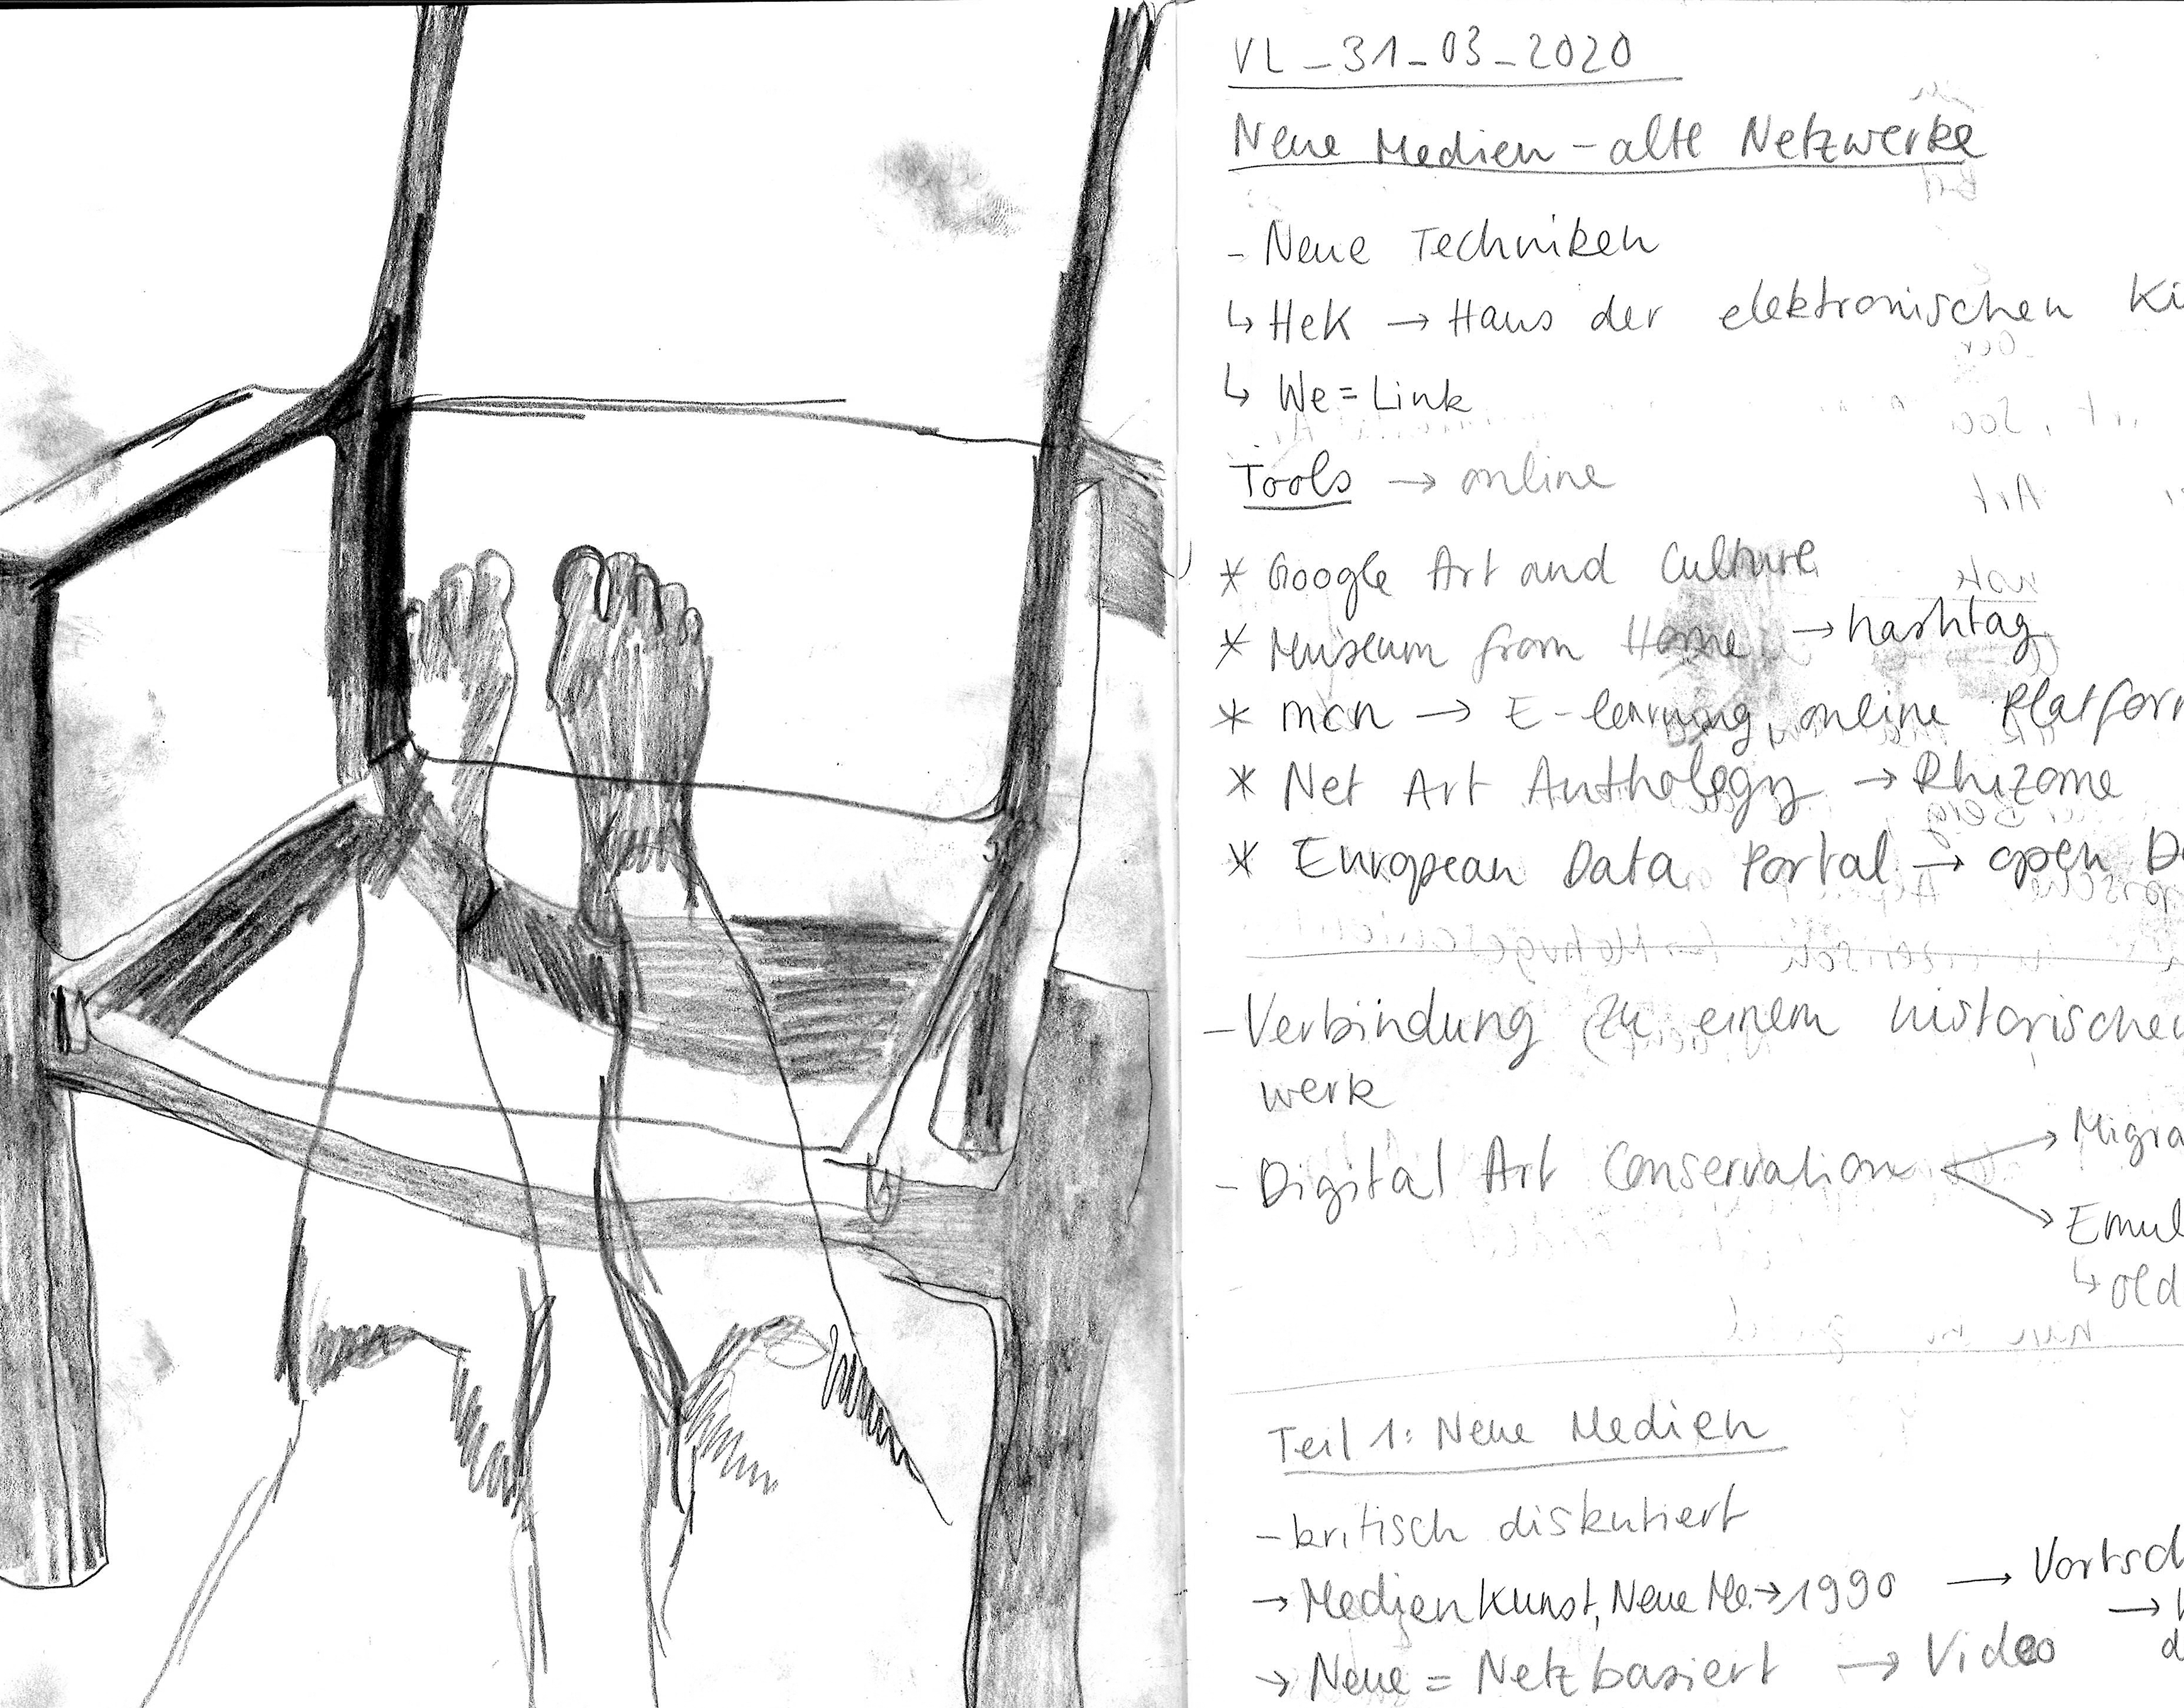 VL_31_03_2020
Neue Medien – alte Netzwerke
- Neue Techniken
↳ HeK → Haus der elektronischen
↳ We = Link
Tools → online
* Google Art and Culture
* Museum from Home → hashtag
* mcn → E-learning, online Platfor
* Net Art Anthology → Rhizome
* European Data Portal → open D
- Verbindung zu einem historische
werk
- Digital Art Conservation
Migra
Emul
↳ old
Teil 1: Neue Medien
- kritisch diskutiert
→ Medienkunst, Neue Me. → 1990 →
→ Neue = Netzbasiert → Video